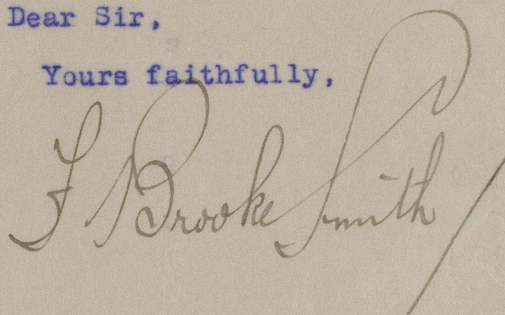 Dear Sir,
Yours faithfully,
F Brooke Smith